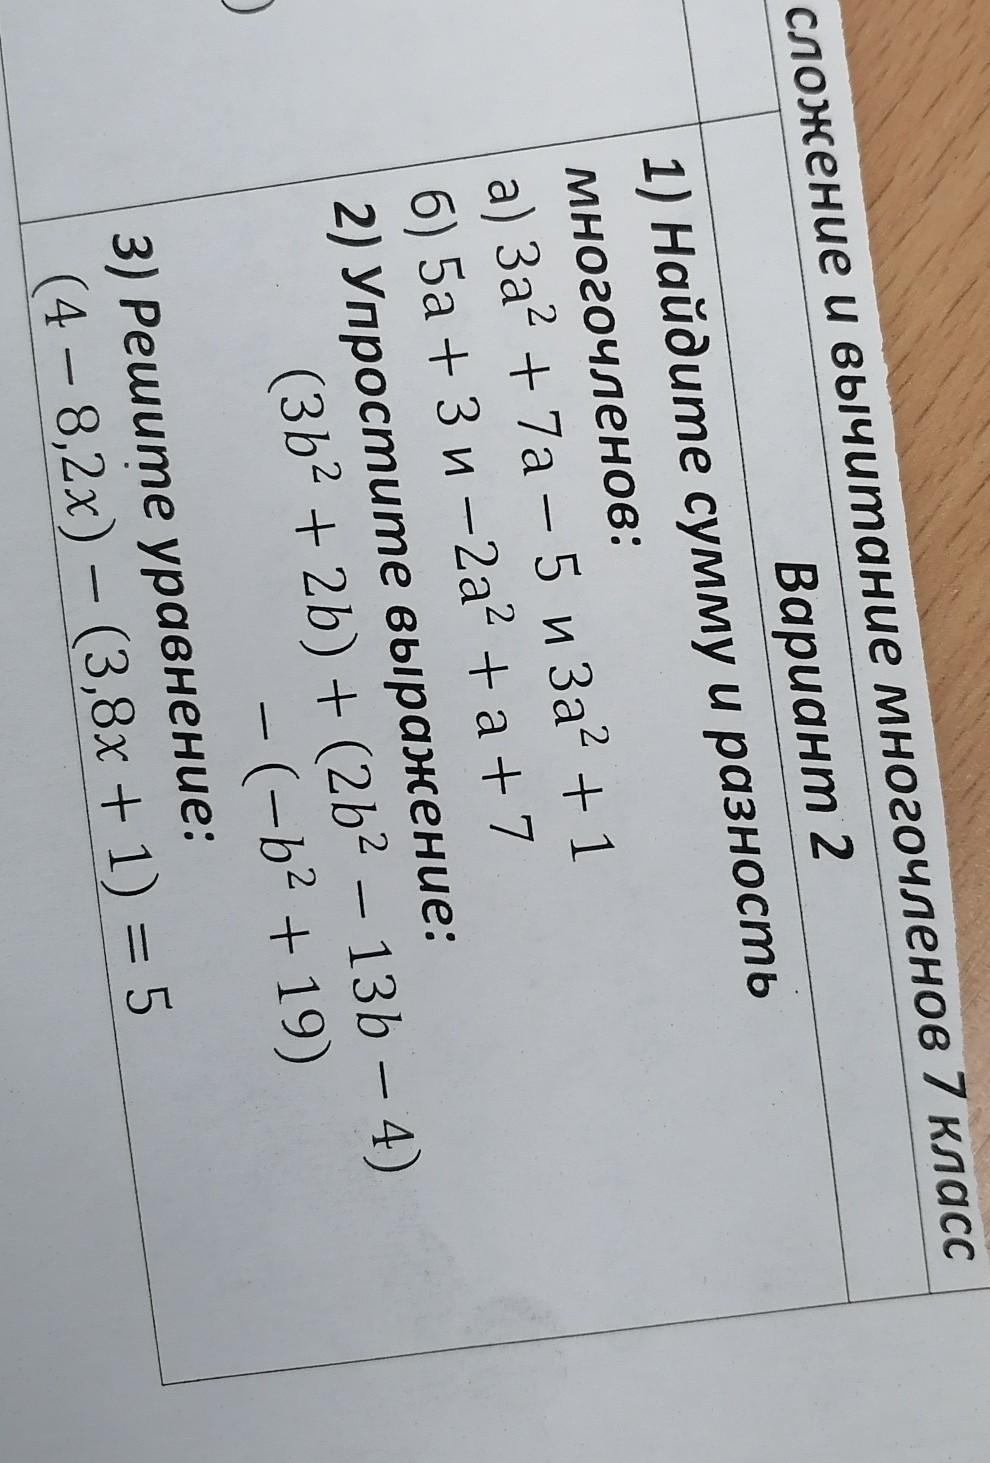 сложение и вычитание многочленов 7 класс
Вариант 2
1) Найдите сумму и разность
многочленов:
а) 3a² + 7a − 5 и 3a² + 1
б) 5a + 3 и −2a² + a + 7
2) Упростите выражение:
(3b² + 2b) + (2b² − 13b − 4)
− (−b² + 19)
3) Решите уравнение:
(4 − 8,2x) − (3,8x + 1) = 5